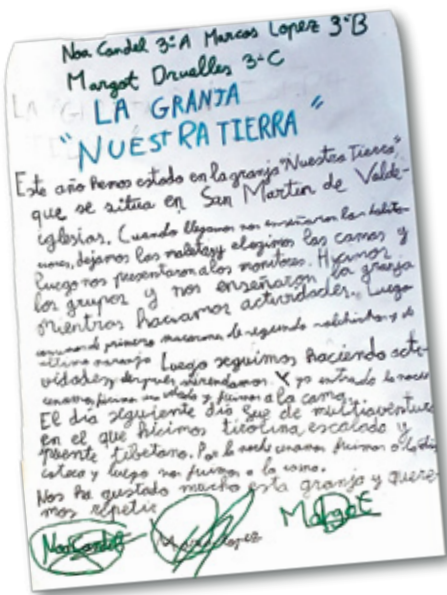 Noa Candel 3ºA Marcos Lopez 3ºB
Margot Druelles 3ºC
LA GRANJA
"NUESTRA TIERRA"
Este año hemos estado en la granja "Nuestra Tierra"
que se situa en San Martin de Valde-
iglesias. Cuando llegamos nos enseñaron las habita-
ciones, dejamos las maletas y elegimos las camas y
luego nos presentaron a los monitores. Hicimos
los grupos y nos enseñaron la granja
mientras haciamos actividades. Luego
comimos de primero macarrones de segundo salchichas y de
ultimo naranja Luego seguimos haciendo acti-
vidades y después merendamos. Y ya entrada la noche
cenamos, y fuimos a la cama.
El día siguiente dia fue de multiaventura
en el que hicimos tirolina escalada y
puente tibetano. Por la noche cenamos fuimos a la dis
coteca y luego nos fuimos a la cama.
Nos ha gustado mucho esta granja y quere-
mos repetir
Noa Candel Marcos Lopez Margot